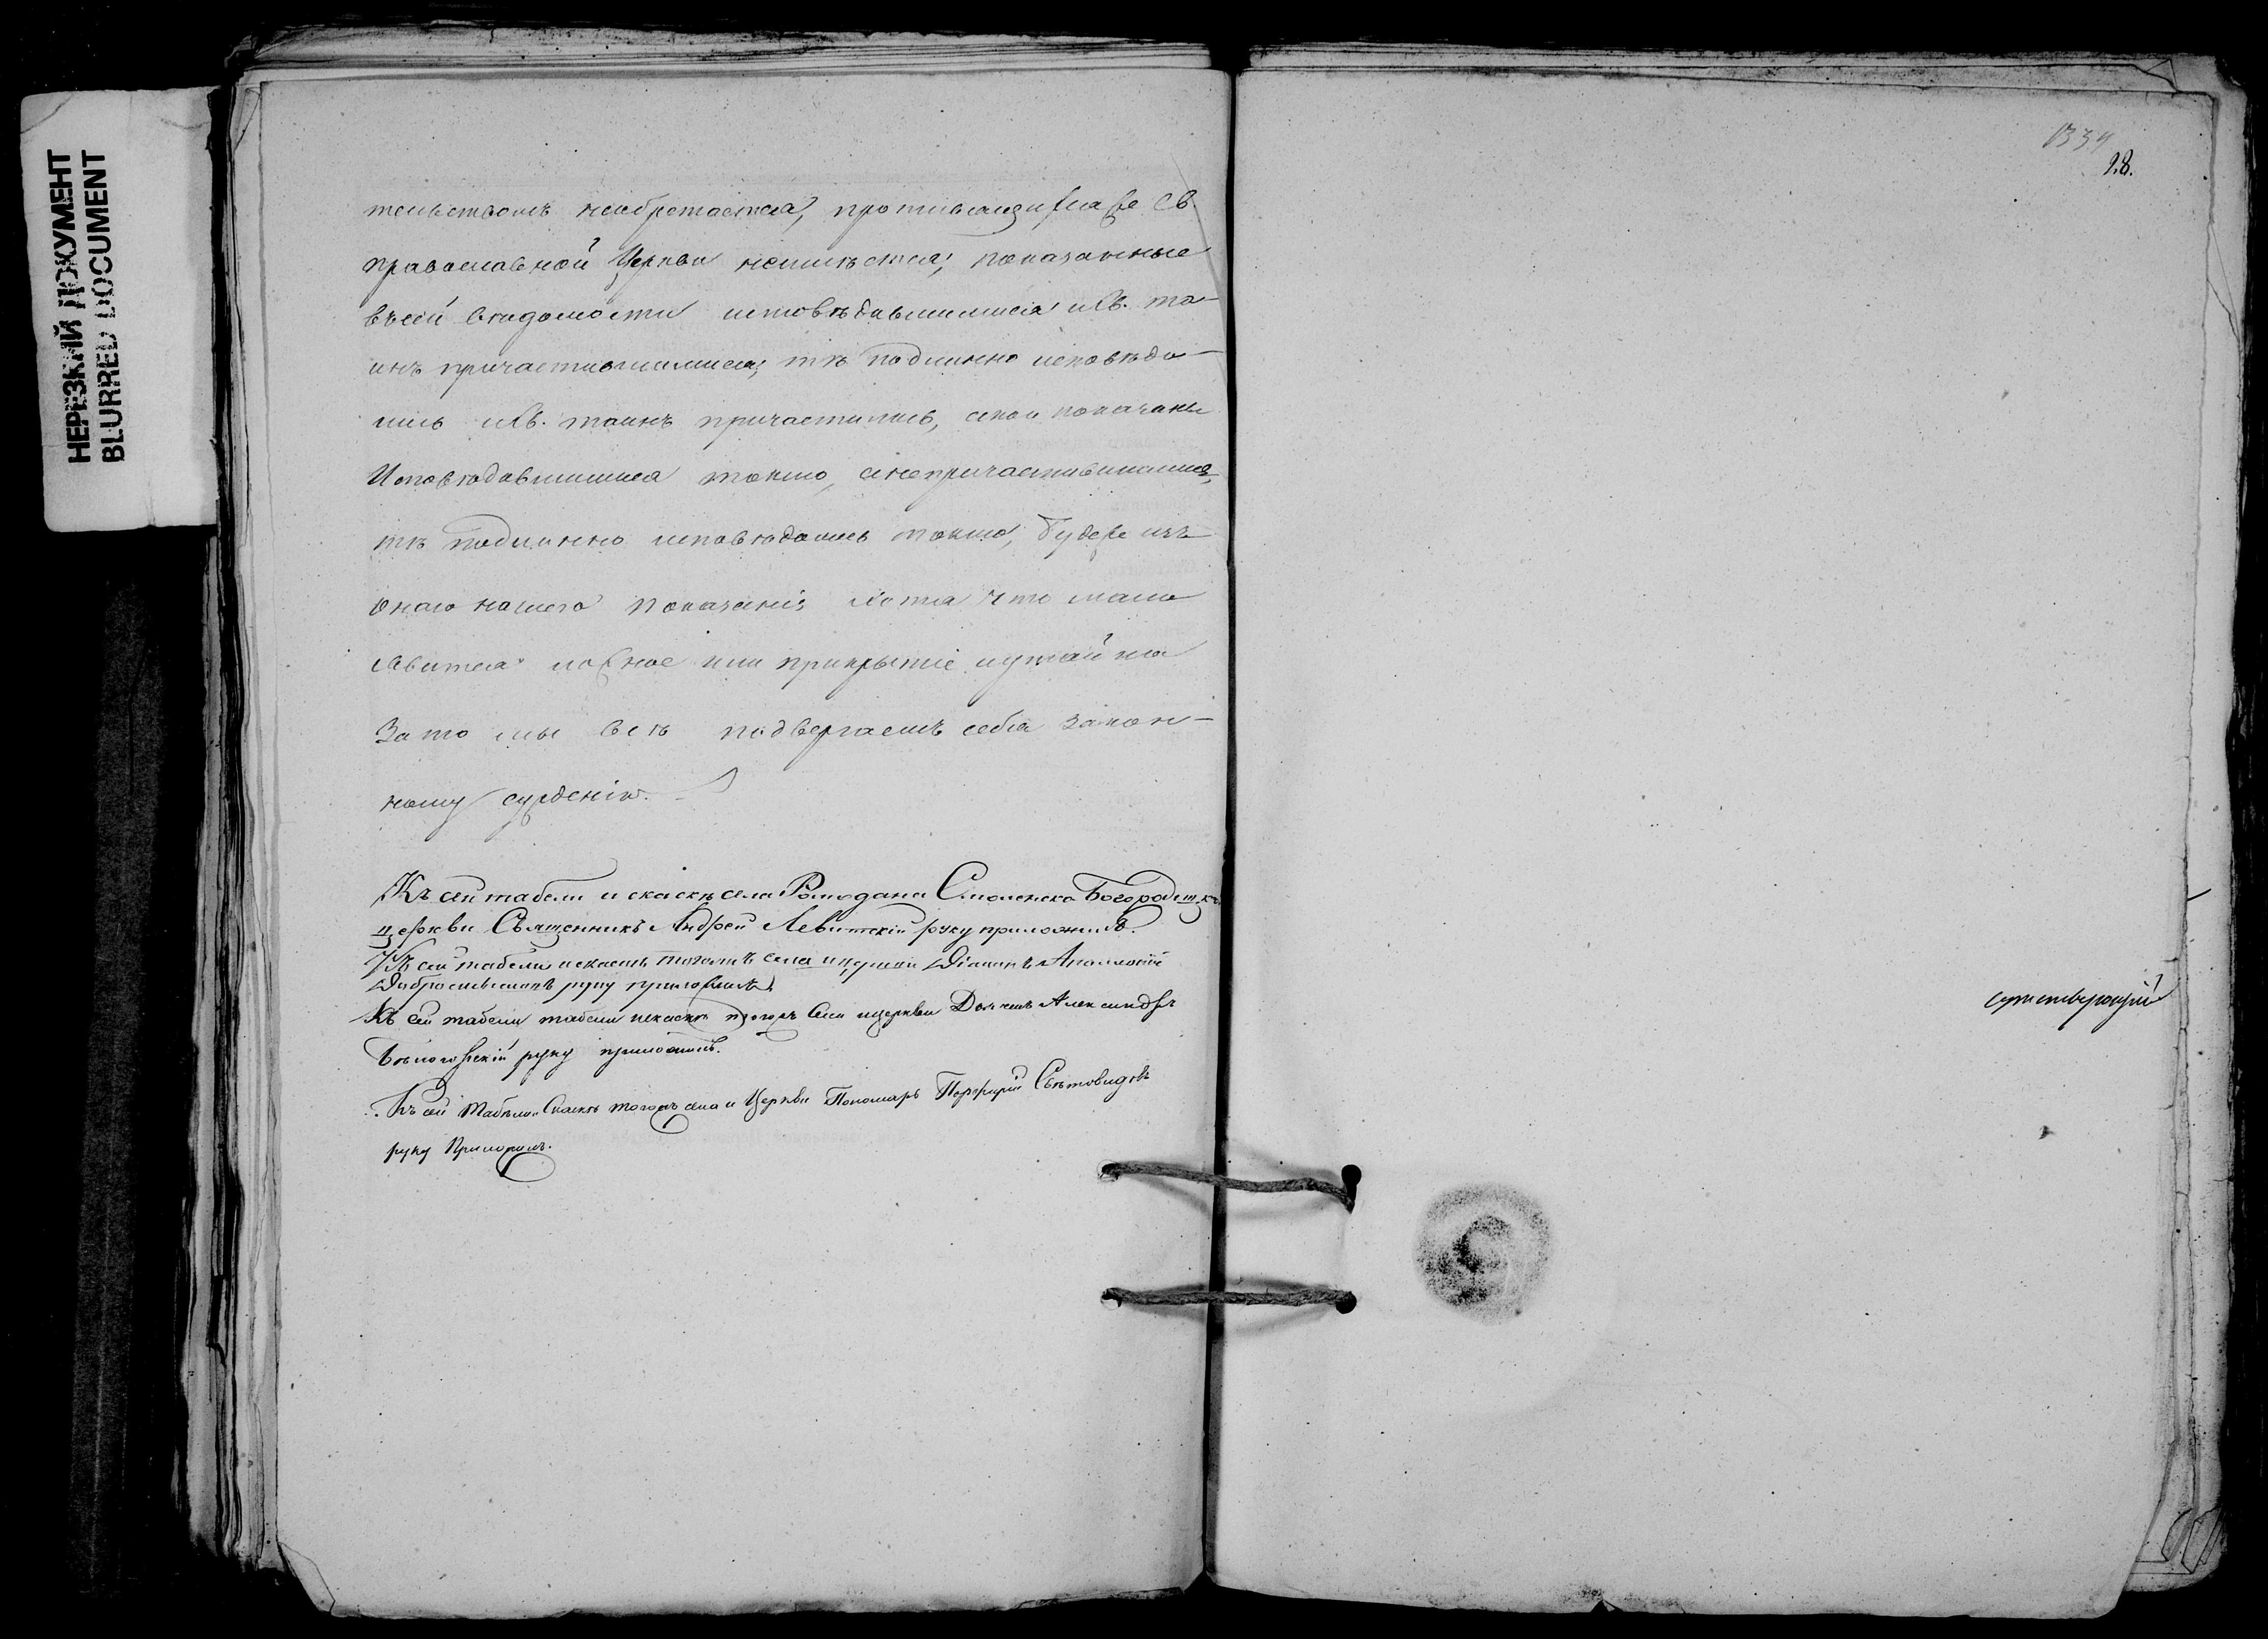 НЕРЕЗКИЙ ДОКУМЕНТ
BLURRED DOCUMENT
тельствомъ необретается, противящихся же Св.
православной Церкви неимѣется; показанные
въ сей вѣдомости исповѣдавшимися и Св. та-
инъ причастившимися; тѣ подлинно исповѣда-
лись и Св. таинъ причастились, а кои показаны
Исповѣдавшимися токмо, а непричастившимися,
тѣ подлинно исповѣдались токмо, буде же изъ
онаго нашего показанія хотя что мало
явится ложное или прикрытіе и утайка
За то мы всѣ подвергаемъ себя закон-
ному сужденію.
Къ сей табели и сказкѣ села Ромодана Смоленско Богородицк.
церкви Священникъ Андрей Левитскій руку приложилъ.
Къ сей табели и сказкѣ тогожъ села и церкви Діаконъ Аполлоній
Добросмысловъ руку приложилъ
Къ сей табели табели и сказкѣ тогожъ села и церкви Дьячекъ Александръ
Бѣлогорскій руку приложилъ.
Къ сей табели и Скаскѣ тогожъ села и Церкви Пономарь Порфирій Свѣтовидовъ
руку Приложилъ.
1334
28.